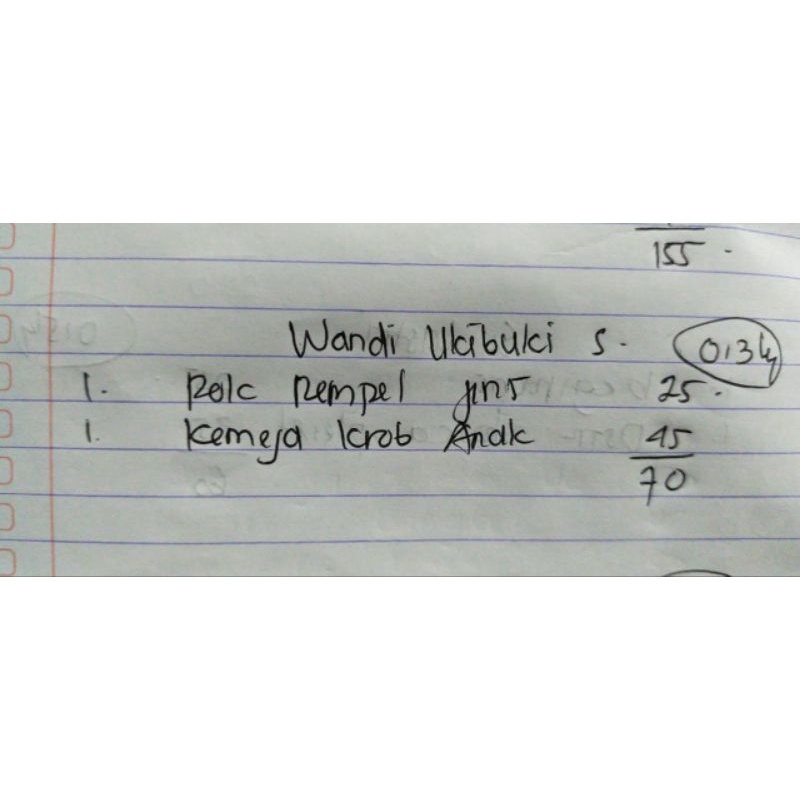 155 .
Wandi Ukibuki S.
1. Rok Rempel jins 25.
1. Kemeja krob Anak 45
70